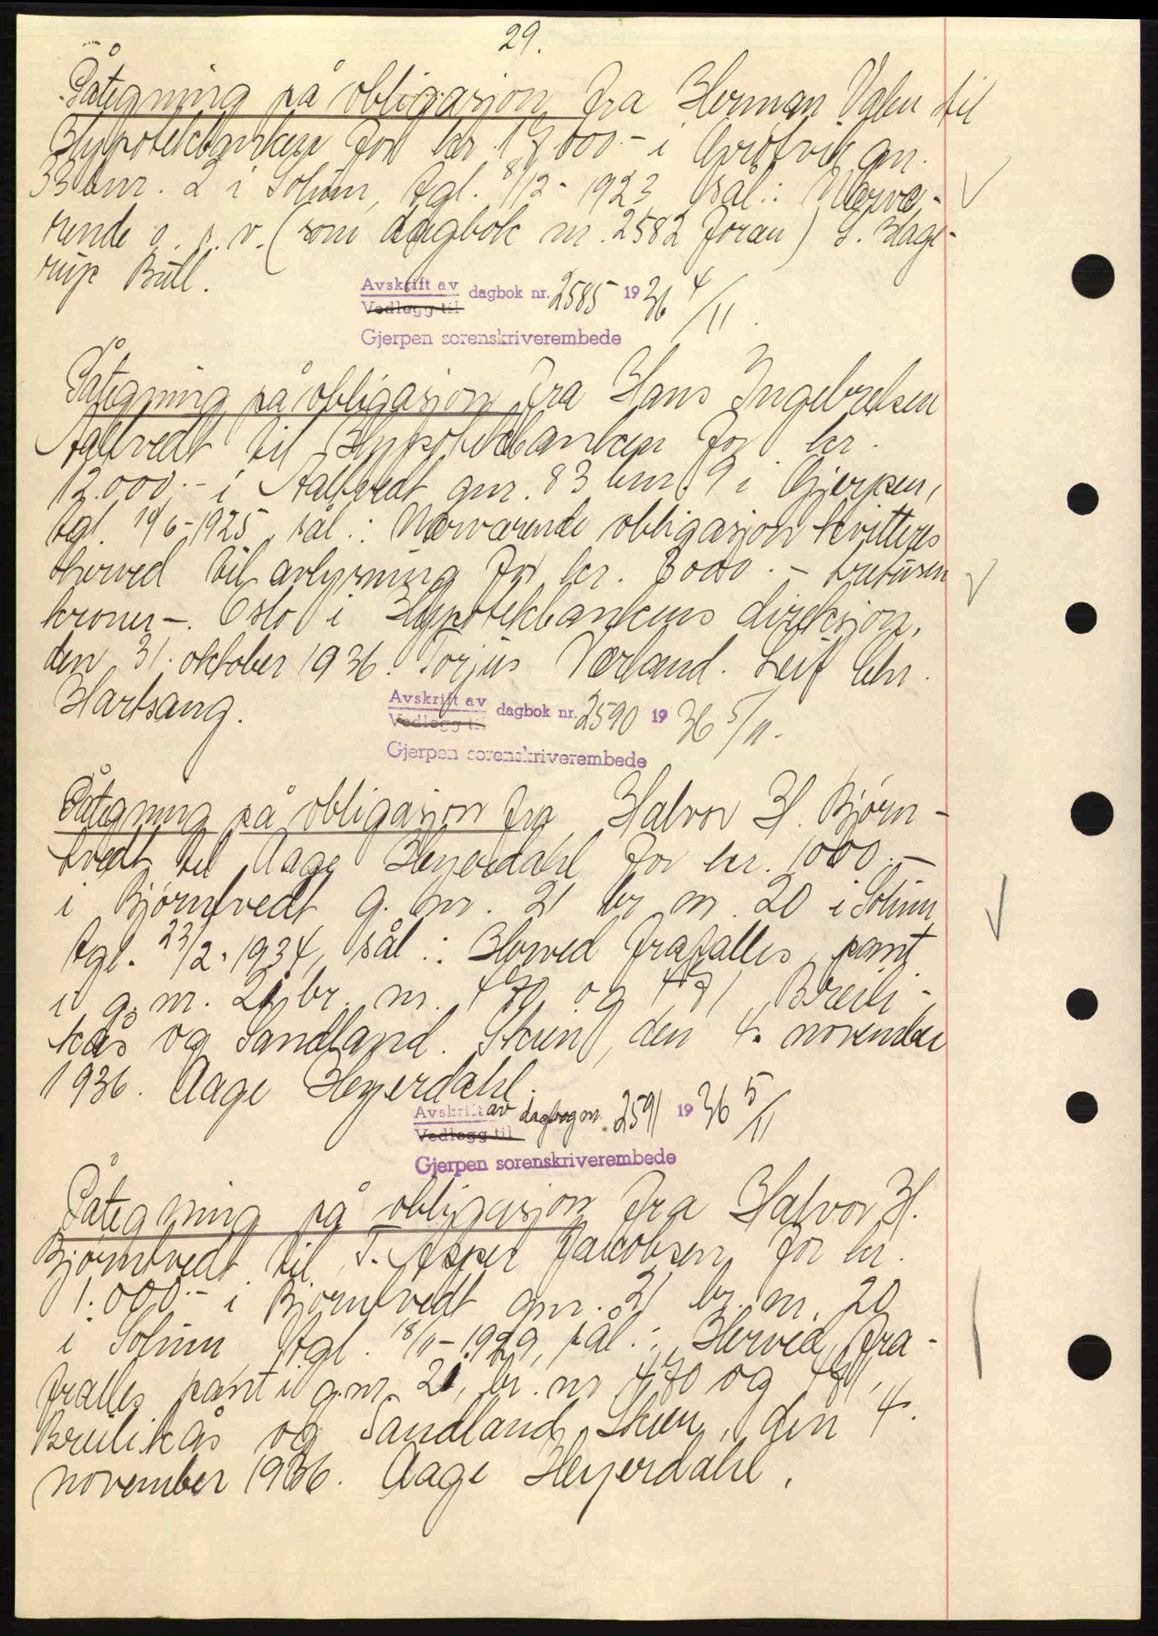 29.
Påtegning på obligasjon fra Herman Valen til
Hypotekbanken for kr. 17000.- i Grøtvik gnr.
33 bnr. 2 i Solum, tgl. 8/12-1923, sål.: Nærvæ-
rende o. s. v. (som dagbok nr. 2582 foran) S. Hage-
rup Bull.
Avskrift av dagbok nr. 2585 1936 4/11.
Vedlegg til
Gjerpen sorenskriverembede
Påtegning på obligasjon fra Hans Ingebretsen
til Hypotekbanken for kr.
12.000.- i gnr. 83 bnr. 9 i Gjerpen,
tgl. 19/6-1925, sål.: Nærværende obligasjon kvitteres
herved til avlysning for kr. 3000.- tretusen
kroner-. Oslo i Hypotekbankens direksjon,
den 31. oktober 1936. Torjus Værland. Leif Chr.
Hartsang.
Avskrift av dagbok nr. 2590 1936 5/11.
Vedlegg til
Gjerpen sorenskriverembede
Påtegning på obligasjon fra Halvor H. Bjørn-
tvedt til Aage Heyerdahl for kr. 1000.-
i Bjørntvedt g. nr. 21 br. nr. 20 i Solum
tgl. 23/2-1934, sål.: Herved frafalles pant
i g. nr. 21, br. nr. 470 og 471, Breili-
kås og Sandland. Skien, den 4. november
1936. Aage Heyerdahl.
Avskrift av dagbog nr. 2591 1936 5/11
Vedlegg til
Gjerpen sorenskriverembede
Påtegning på obligasjon fra Halvor H.
Bjørntvedt til T. Jacobsen for kr.
1.000.- i Bjørntvedt gnr. 21 br. nr. 20
i Solum, tgl. 18/11-1929, sål.: Herved fra-
falles pant i g.nr. 21, br. nr 470 og 471,
Breilikås og Sandland, Skien, den 4.
november 1936. Aage Heyerdahl.